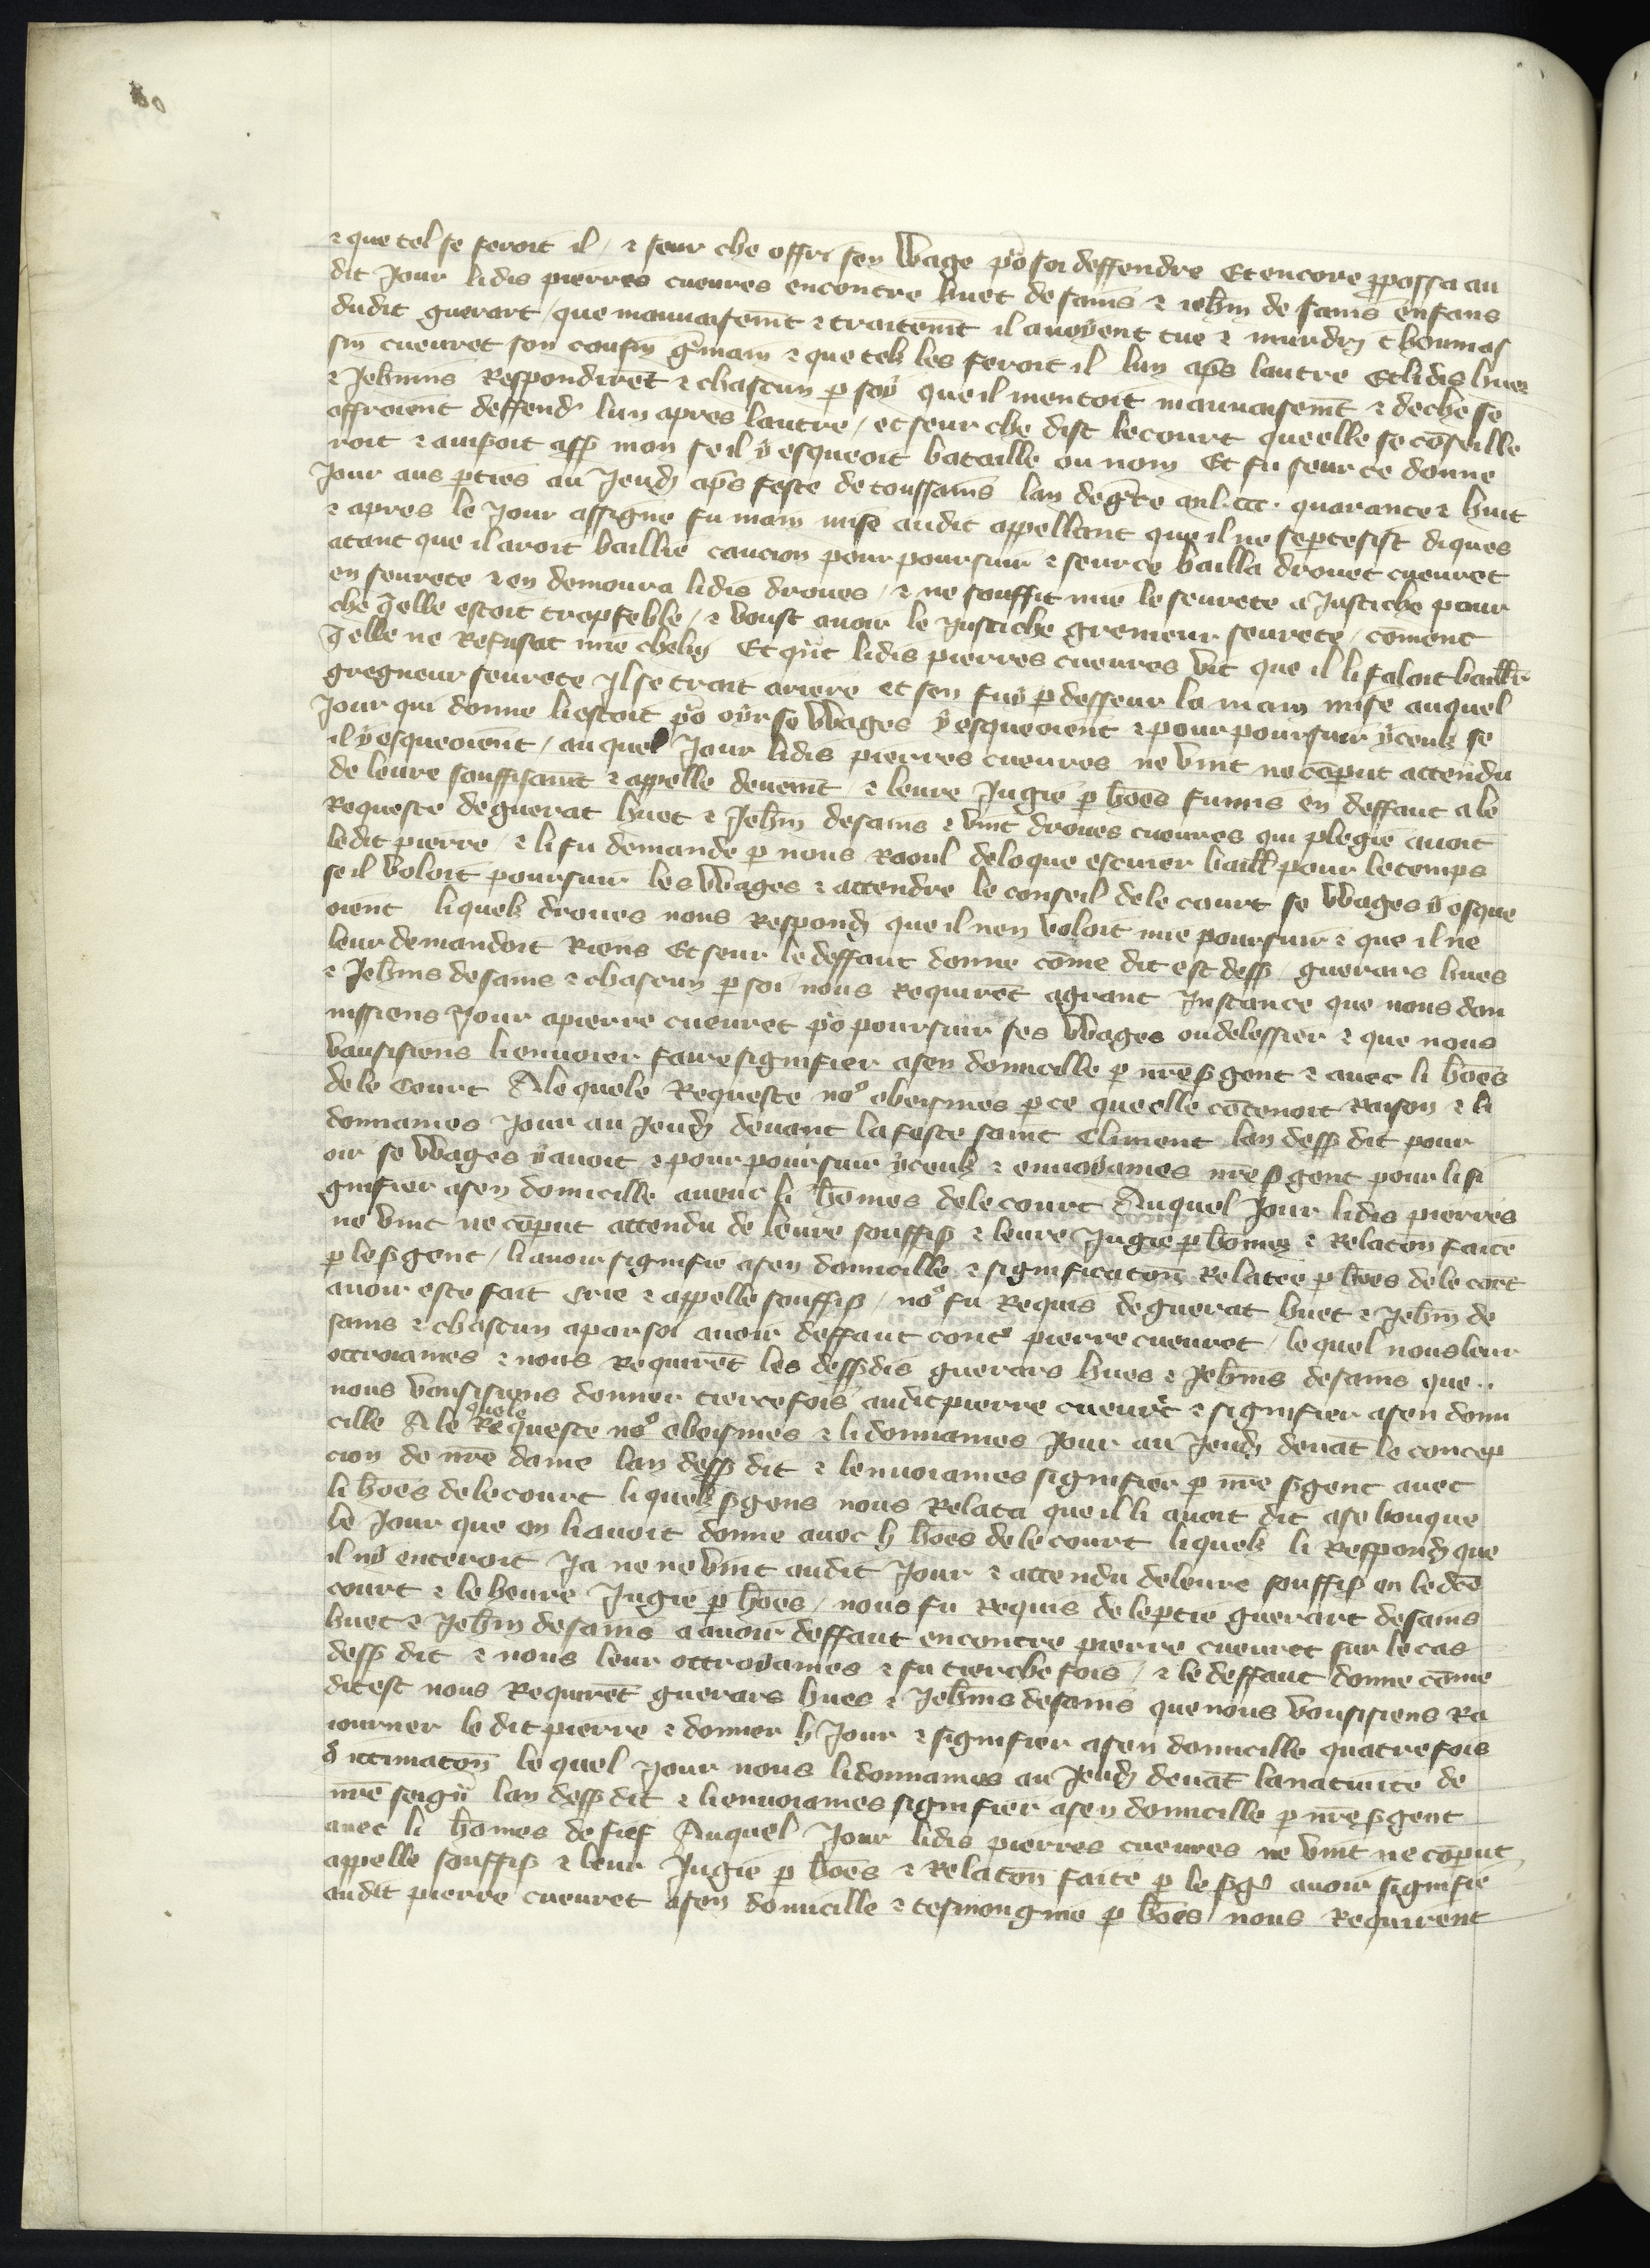 ⁊ que tel se feroit il / ⁊ seur che offri sen Wage po᷒ soi deffendre Et encore ꝓpossa au
dit Jour lidis pierres cueures encontre huet de sains ⁊ iehin de sains enfans
dudit guerart / que mauuaisemt ⁊ traitemt il auoyent tue ⁊ murdry thoumas
sin cueuret son cousin gˢmain ⁊ que telz les feroit il lun apˢ lautre Et lidis hues
⁊ Jehnins Respondiret ⁊ chascun ꝑ soy que il mentoit mauuaisemt ⁊ de che se
offroient deffendˢ lun apres lautre / et seur che dist le court que elle se coseille
roit ⁊ auisoit assꝭ mon se il y esqueoit bataille ou non Et fu seur ce donne
Jour aus ꝑties au Jeudy apˢ feste de toussains lan de gˢce mil. ccc. quarante ⁊ huit
⁊ apres le Jour assigne fu main mise audit appellant que il ne se ꝑtesist diques
atant que il aroit baillie caucion pour poursuir ⁊ seur ce bailla drouet cueuret
en seurete ⁊ en demoura lidis droues / ⁊ ne souffit mie le seurete a Justiche pour
che q̄lle estoit trop feble / ⁊ voust auoir le Justiche gremeur seurete / coment
q̄lle ne Refusat mie cheli Et qnt lidis pierres cueures vit que il li faloit baillr
gregneur seurete Il se trait ariere et sen fuy ꝑ desseur la main mise auquel
Jour qui donne li estoit po᷒ oyr se Wages y esqueoient ⁊ pour poursuir yceulz se
il y esqueoient / auquel Jour lidis pierres cueures ne vint ne coꝑut attendu
de leure souffisaumt ⁊ appelle deuemt / ⁊ leure Jugie ꝑ hoes fumis en deffaut a le
Requeste de guerat huet ⁊ Jehin de sains ⁊ vint droues cueures qui plegie auoit
ledit pierre / ⁊ li fu demande ꝑ nous Raoul de loque escuier baill pour le temps
se il voloit poursuir les Wages ⁊ attendre le conseil de le court se Wages y esque
oient liquelz droues nous Respondy que il nen voloit mie poursuir ⁊ que il ne
leur demandoit Riens Et seur le deffaut donne come dit est dessꝭ / guerars hues
⁊ Jehnins de sains ⁊ chascun ꝑ soi nous Requiret a grant Instance que nous don
nissiens Jour a pierre cueuret po᷒ poursuir ses Wages ou delessier ⁊ que nous
vausisiens li enuoier faire signifier a sen domicille ꝑ nre sꝑgent ⁊ auec li hoes
de le Court A le quele Requeste no᷒ obeismes ꝑ ce que elle cotenoit Raison ⁊ li
donnames Jour au Jeudy deuant la feste saint Climent lan dessꝭ dit pour
oir se Wages y auoit ⁊ pour poursuir yceulz ⁊ enuoyames nre sꝑgent pour li si
gnifier a sen domicille aueuc li homes de le court Auquel Jour lidis pierres
ne vint ne coꝑut attendu de leure souffiꝭ ⁊ leure Jugie ꝑ homes ⁊ Relaton faite
ꝑ le sꝑgent / li auoir signifie a sen domicille ⁊ significaton Relatee ꝑ hoes de le cort
auoir este fait Crie ⁊ appelle souffiꝭ / no᷒ fu Requis de guerat huet ⁊ Jehin de
sains ⁊ chascun apar soi auoir deffaut contˢ pierre cueuret / le quel nous leur
ottroiames ⁊ nous Requiret les dessꝭdis guerars hues ⁊ Jehnis de sains que..
nous vausisiens donner tierce fois audit pierre cueuret ⁊ signifier a sen domi
cille A le quele Requeste no᷒ obeismes ⁊ li donnames Jour au Jeudy deuat le concep
cion de nre dame lan dessꝭ dit ⁊ lenuoiames signifier ꝑ nre sꝑgent auec
li hoes de le court liquelz sꝑgens nous Relata que il li auoit dit a se bouque
le Jour que on li auoit donne auec li hoes de le court liquelz li Respondy que
il ny enteroit Ja ne ne vint audit Jour ⁊ attendu de leure souffiꝭ en le dce
court ⁊ le heure Jugie ꝑ hoes / nous fu Requis de le ꝑtie guerart de sains
huet ⁊ Jehin de sains a auoir deffaut encontre pierre cueuret sur le cas
dessꝭ dit ⁊ nous leur ottroyames ⁊ fu tierche fois / ⁊ le deffaut donne come
dit est nous Requiret guerars hues ⁊ Jehnis de sains que nous vausisiens Ra
iourner le dit pierre ⁊ donner li Jour ⁊ signifier a sen domicille quatre fois
dˢ intimaton le quel Jour nous li donnames au Jeudy deuat la natiuite de
nre seigr lan dessꝭ dit ⁊ li enuoiames signifier a sen domicille ꝑ nre sꝑgent
auec li homes de fief Auquel Jour lidis pierres cueures ne vint ne coꝑut
appelle souffiꝭ ⁊ leur Jugie ꝑ hoes ⁊ Relaton faite ꝑ le sꝑgˢ auoir signifie
audit pierre cueuret a sen domicille ⁊ tesmongnie ꝑ hoes nous Requirent